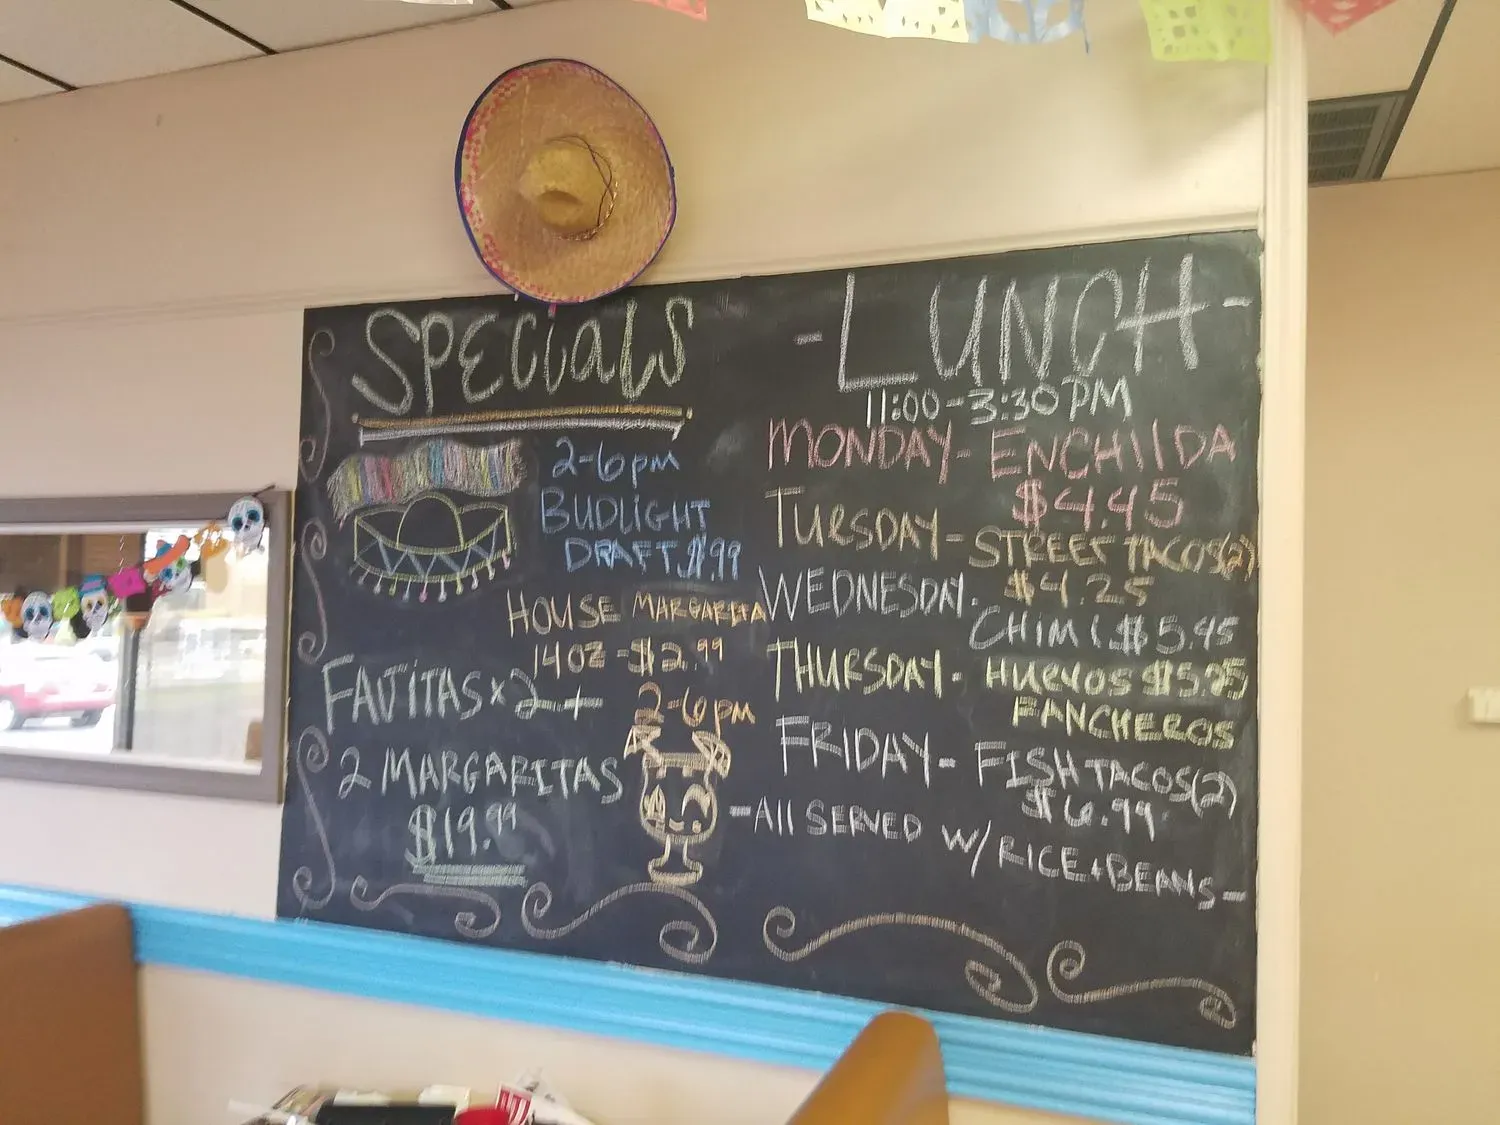 SPECIALS
2-6pm
BUDLIGHT
DRAFT $.99
HOUSE MARGARITA
14oz - $2.99
2-6pm
FAJITAS x 2 +
2 MARGARITAS
$19.99
- LUNCH -
11:00 - 3:30 PM
MONDAY - ENCHILLDA
$4.45
TUESDAY - STREET TACOS(2)
$4.25
WEDNESDAY -
CHIMI $5.45
THURSDAY - HUEVOS $5.25
RANCHEROS
FRIDAY - FISH TACOS(2)
$6.99
- All SERVED W/ RICE + BEANS -